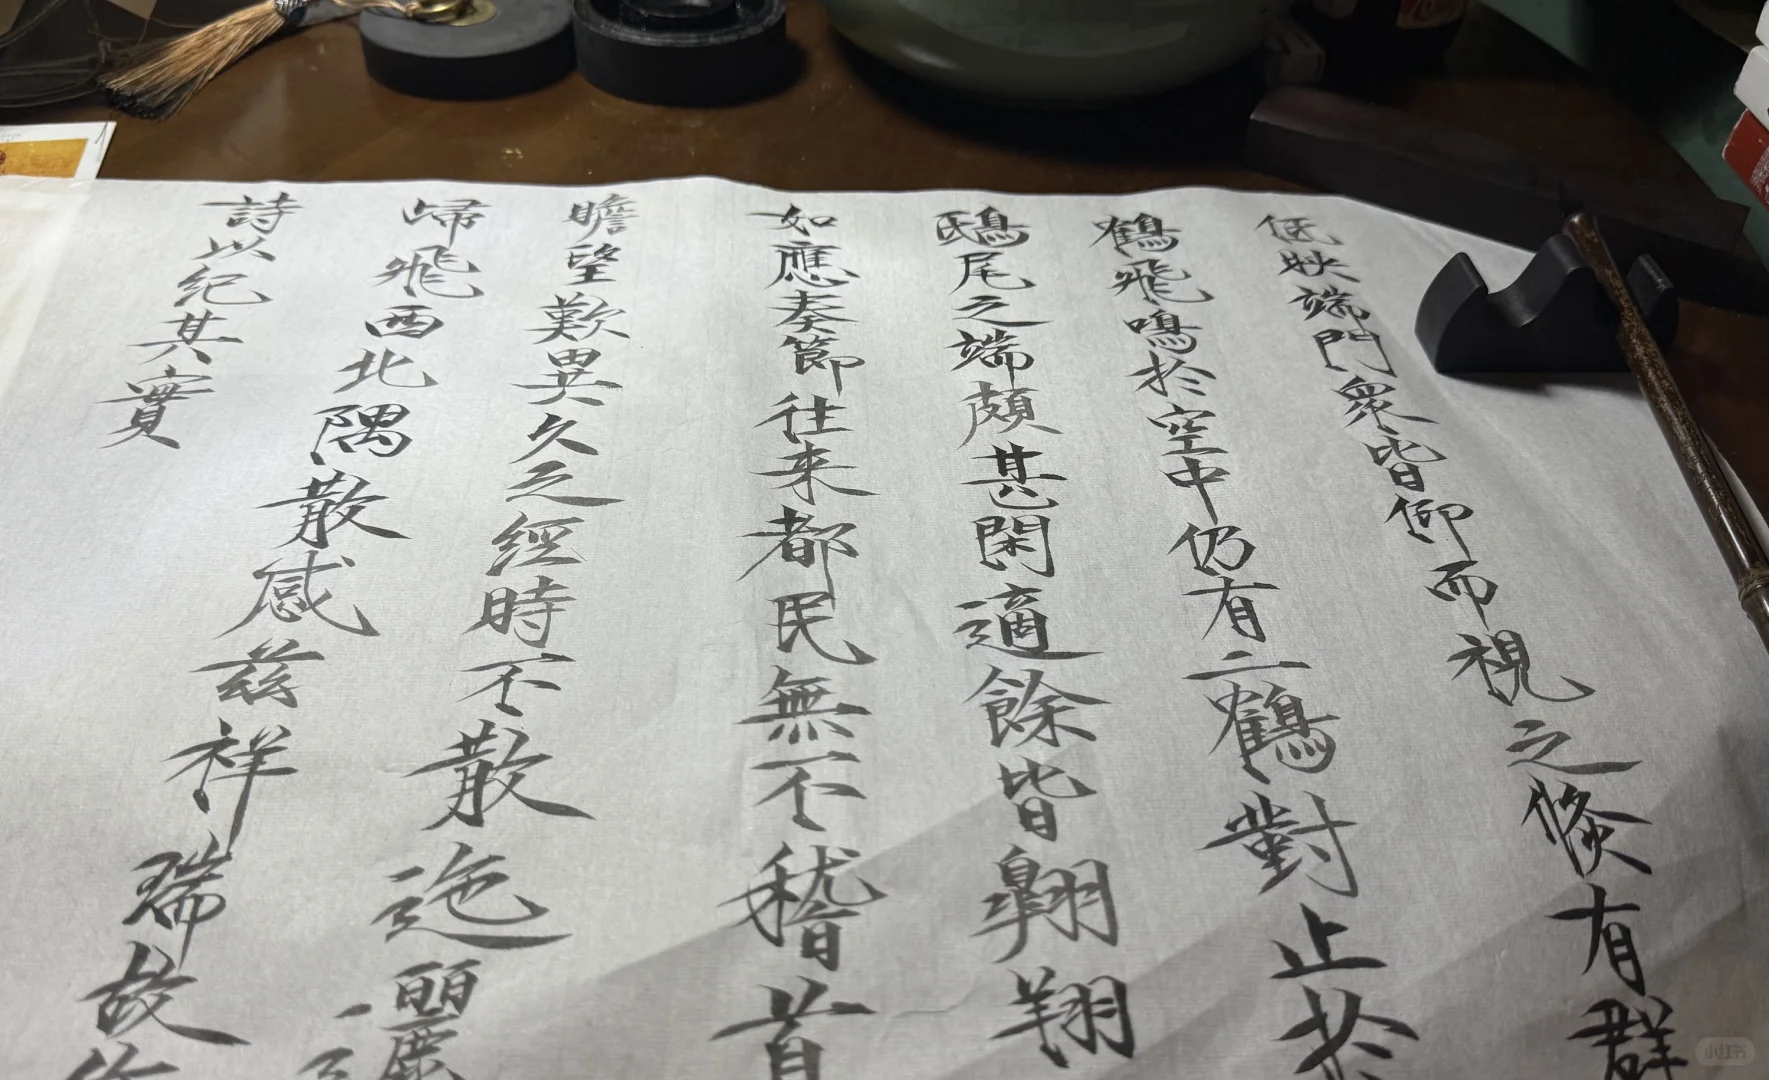 低映端門衆皆仰而視之倏有群
鶴飛鳴於空中仍有二鶴對止於
鴟尾之端頗甚閑適餘皆翺翔
如應奏節往来都民無不稽首
瞻望歎異久之經時不散迤邐
歸飛西北隅散感茲祥瑞故作
詩以紀其實
小红书